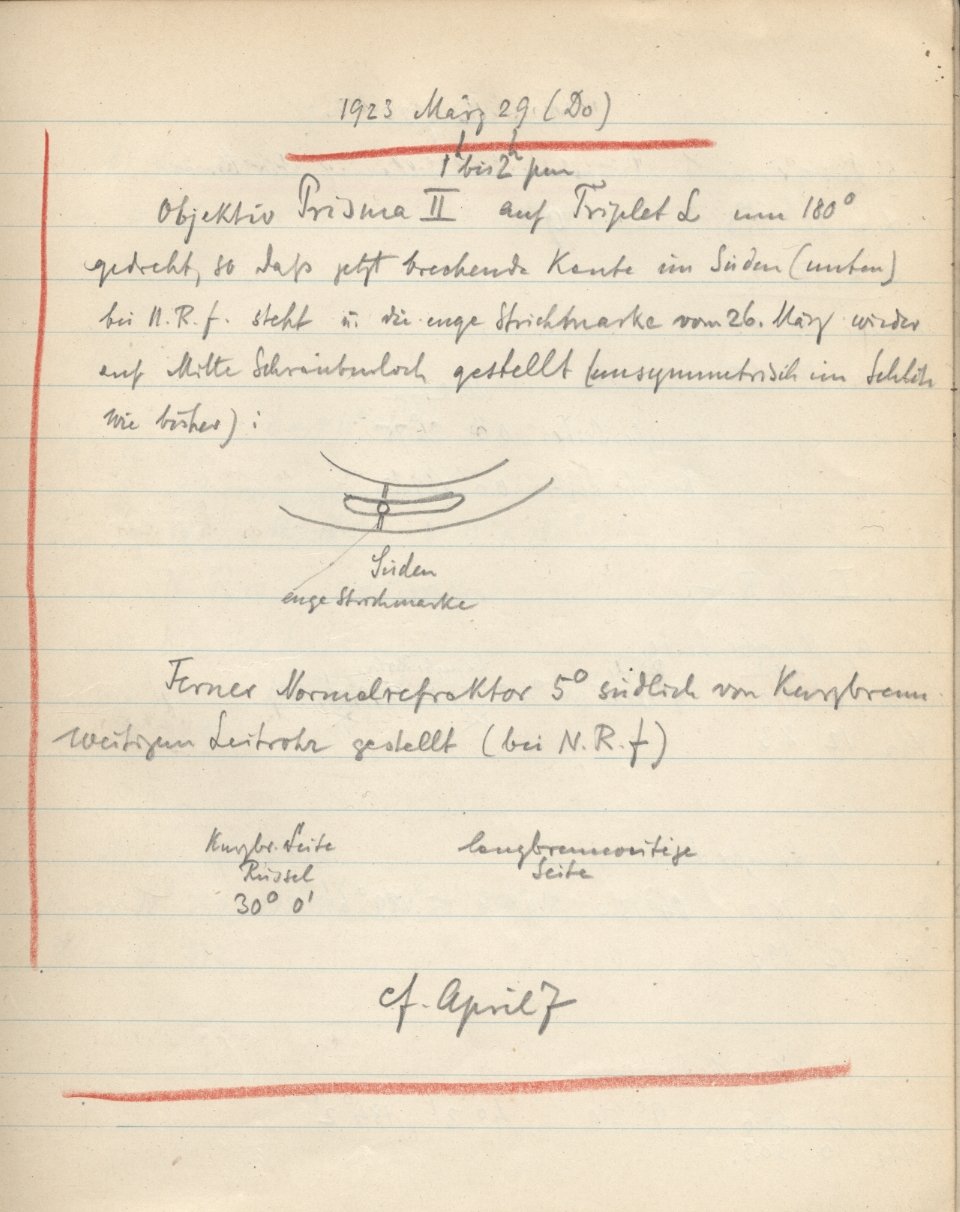 1923 März 29 (Do)
1h bis 2h pm
Objektiv Prisma II auf Triplet L um 180°
gedreht, so daß jetzt brechende Kante im Süden (unten)
bei N.R.f. steht u. die enge Strichmarke vom 26. März wieder
auf Mitte Schraubenloch gestellt (unsymmetrisch im Schlitz
wie bisher) :
Süden
enge Strichmarke
Ferner Normalrefraktor 5° südlich von Kurzbrenn-
weitigem Leitrohr gestellt (bei N.R.f)
Kurzbr. Seite
langbrennweitige
Rüssel
Seite
30° 0'
cf. April 7